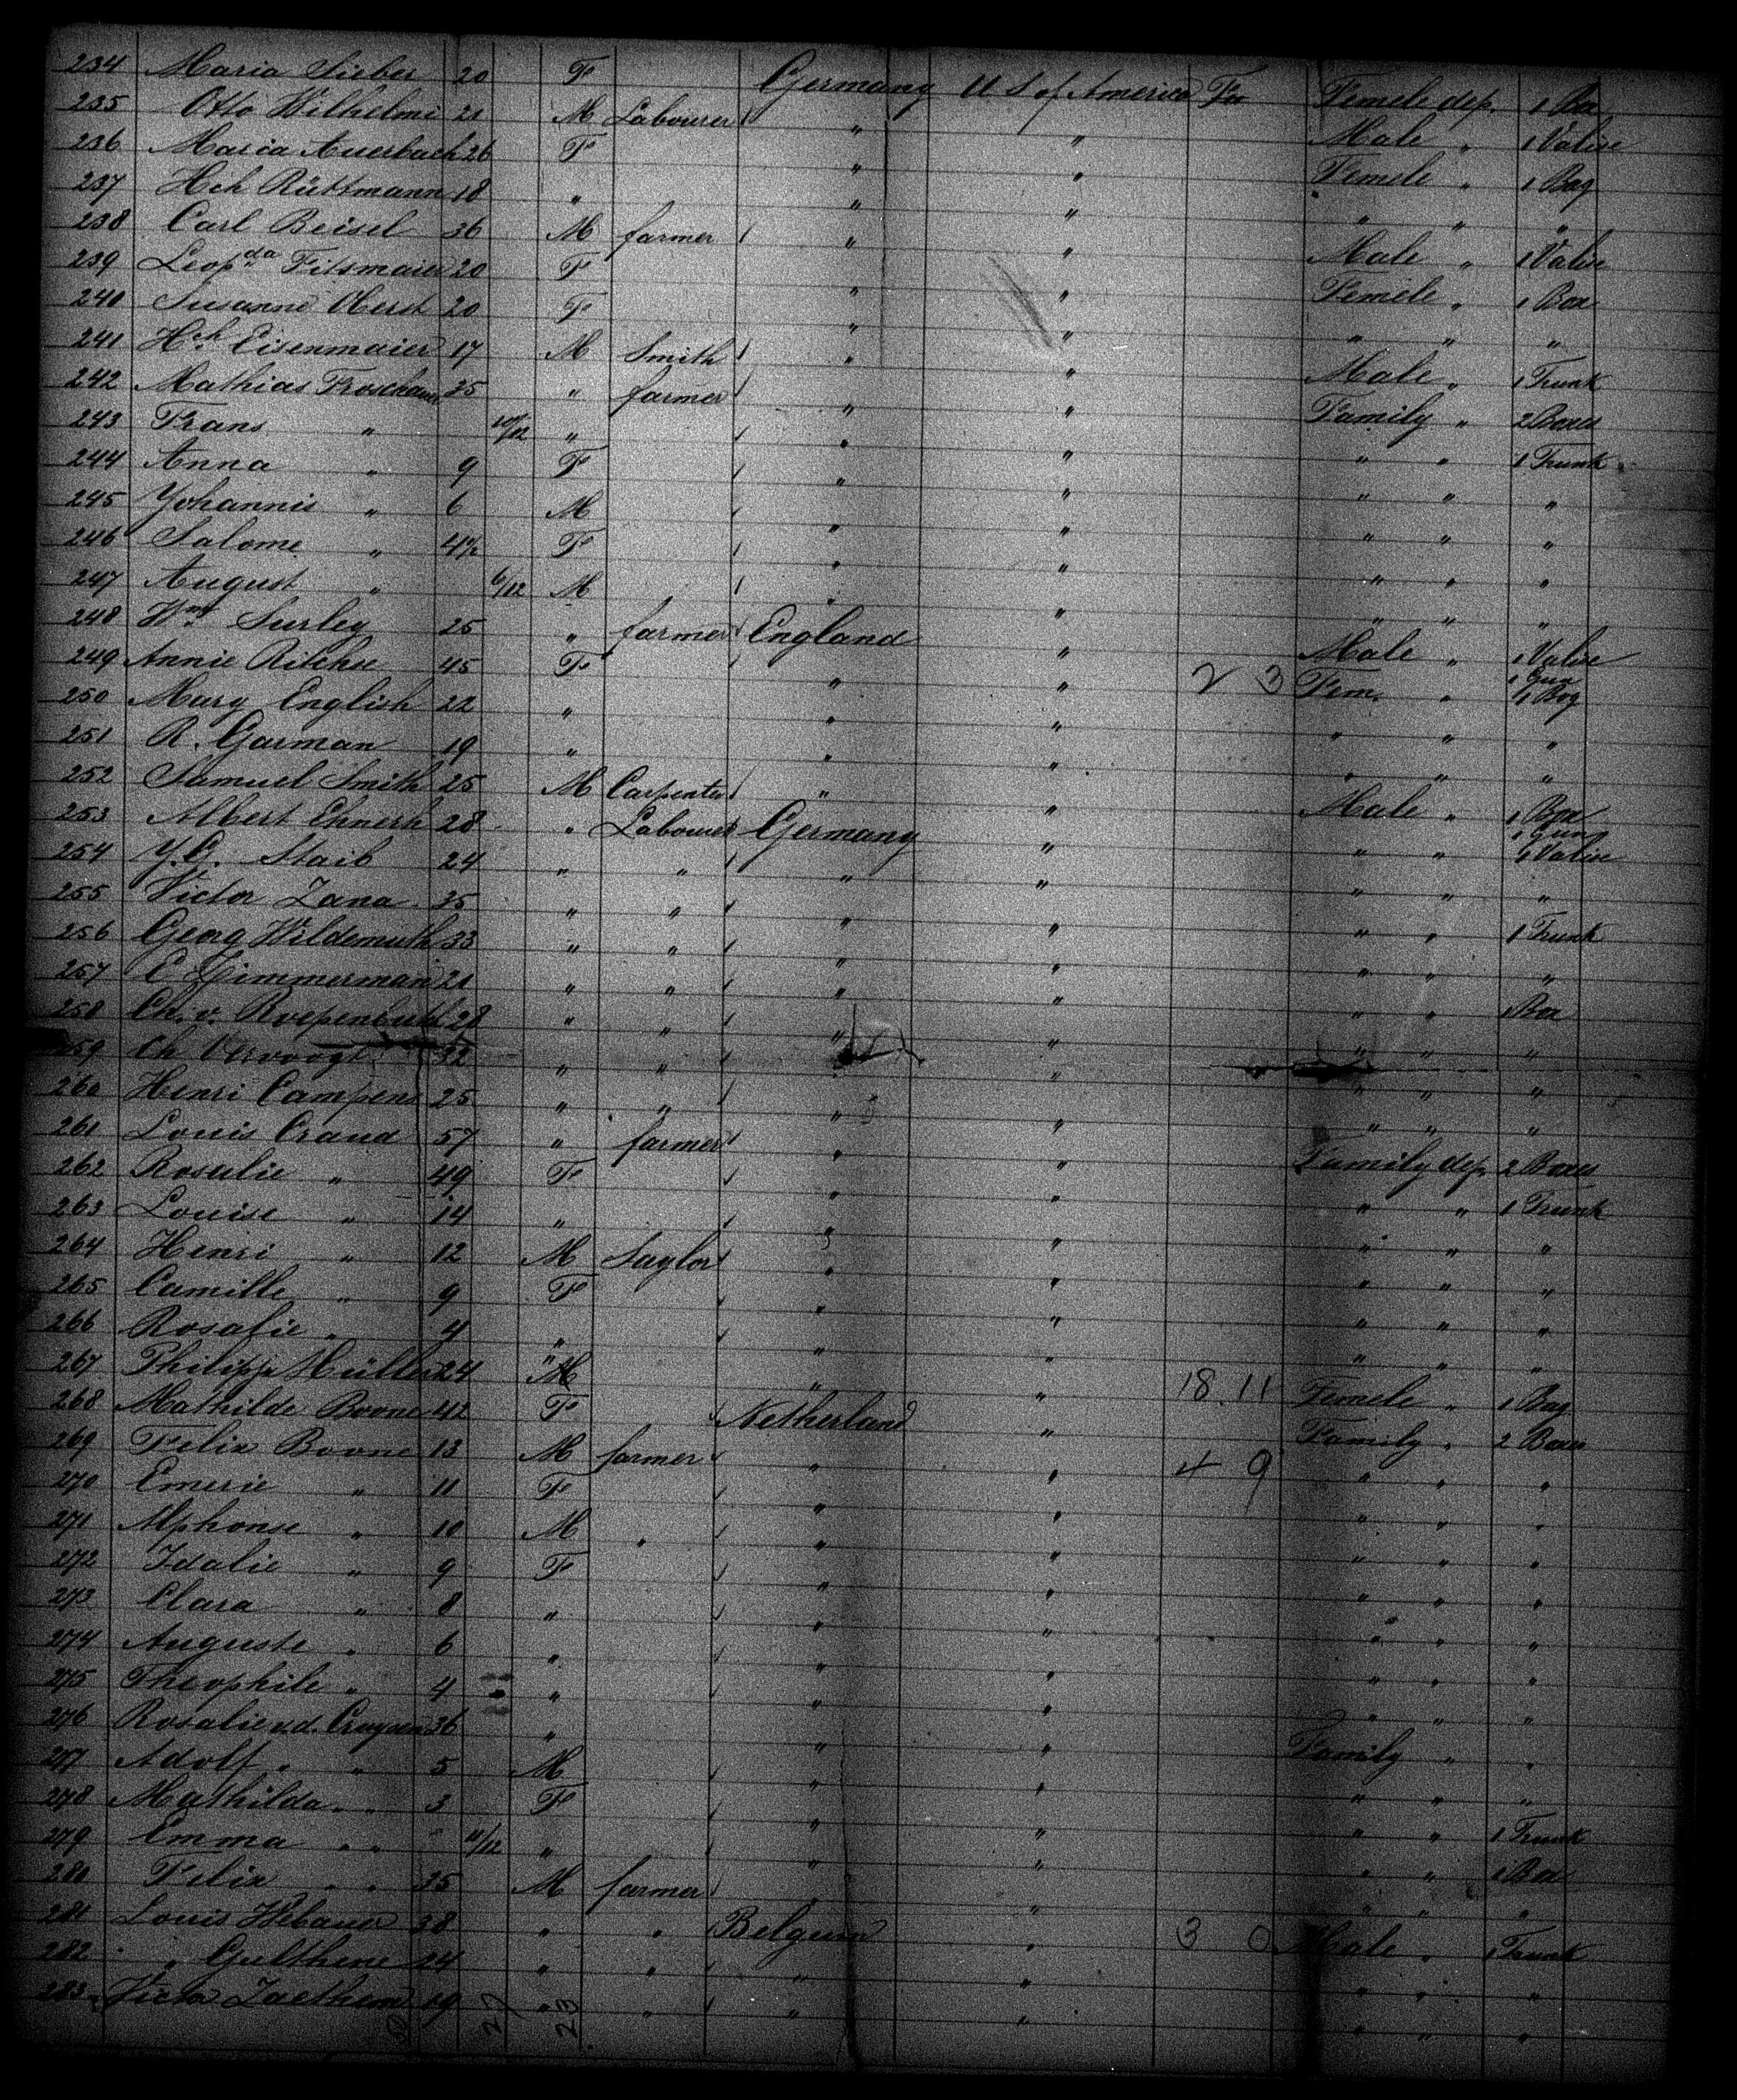 234 Maria Sieber 20 F Germany U S of America Fa Femele dep. 1 Box
235 Otto Wilhelmi 21 M Labourer " " Male " 1 Valise
236 Maria Auerbach 26 F " " Femele " 1 Bag
237 Hch Rüttmann 18 " " " " " "
238 Carl Beisel 36 M farmer " " Male " 1 Valise
239 Leopda Fitsmaier 20 F " " Femele " 1 Box
240 Susanne Oberst 20 F " " " " "
241 Hch Eisenmaier 17 M Smith " " Male " 1 Trunk
242 Mathias Froschauer 35 " farmer " " Family " 2 Boxes
243 Frans " 10/12 " " " " " 1 Trunk
244 Anna " 9 F " " " " "
245 Yohannis " 6 M " " " " "
246 Salome " 4½ F " " " " "
247 August " 6/12 M " " " " "
248 Wm Surley 25 " farmer England " Male " 1 Valise
249 Annie Ritchie 45 F " " 2 3 Fem. " 1 Gun 1 Bag
250 Mary English 22 " " " " " "
251 R. Garman 19 " " " " " "
252 Samuel Smith 25 M Carpenter " " Male " 1 Box
253 Albert Ehnerh 28 " Labourer Germany " " " 1 Gun 1 Valise
254 Y. G. Staib 24 " " " " " " "
255 Victor Zana 35 " " " " " " 1 Trunk
256 Georg Wildemuth 33 " " " " " " "
257 E Zimmerman 21 " " " " " " 1 Box
258 Ch. v. 28 " " " " " " "
259 Ch Vervoogt 32 " " " " " " "
260 Henri Campens 25 " " " " " " "
261 Louis Craud 57 " farmer " " Family dep. 2 Boxes
262 Rosalie " 49 F " " " " 1 Trunk
263 Louise " 14 " " " " " "
264 Henri " 12 M Saylor " " " " "
265 Camille " 9 F " " " " "
266 Rosalie " 4 " " " " " "
267 Philippe Müller 24 " M " " 18 11 Femele " 1 Bag
268 Mathilde Boone 42 F Netherland " Family " 2 Boxes
269 Felix Boone 13 M farmer " " 4 9 " " "
270 Emerie " 11 F " " " " "
271 Alphonse " 10 M " " " " " "
272 Idalie " 9 F " " " " "
273 Clara " 8 " " " " " "
274 Auguste " 6 " " " " " "
275 Theophile " 4 " " " " " "
276 Rosalie v.d. 36 " " " Family " "
277 Adolf " " 5 M " " " " "
278 Mathilda " " 3 F " " " " 1 Trunk
279 Emma " " 11/12 " " " " " 1 Box
280 Felix " " 35 M farmer " " " " "
281 Louis Hebauer 38 " " Belgium " 3 0 Male " 1 Trunk
282 " Gulthene 24 " " " " " " "
283 Victor Zaethem 19 " " " " " " "
27 23